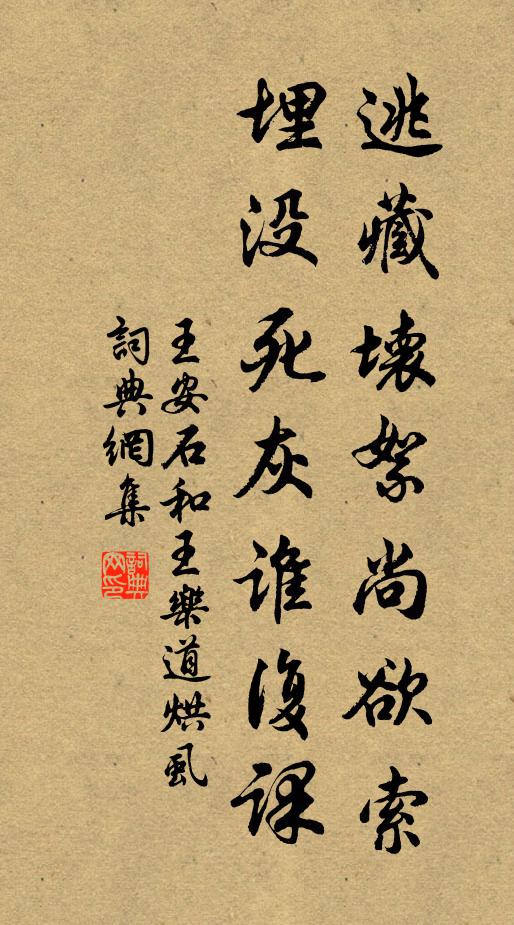 逃藏壞絮尚欲索
埋没死灰誰復課
王安石和王樂道烘虱
詞典網集
詞典網印